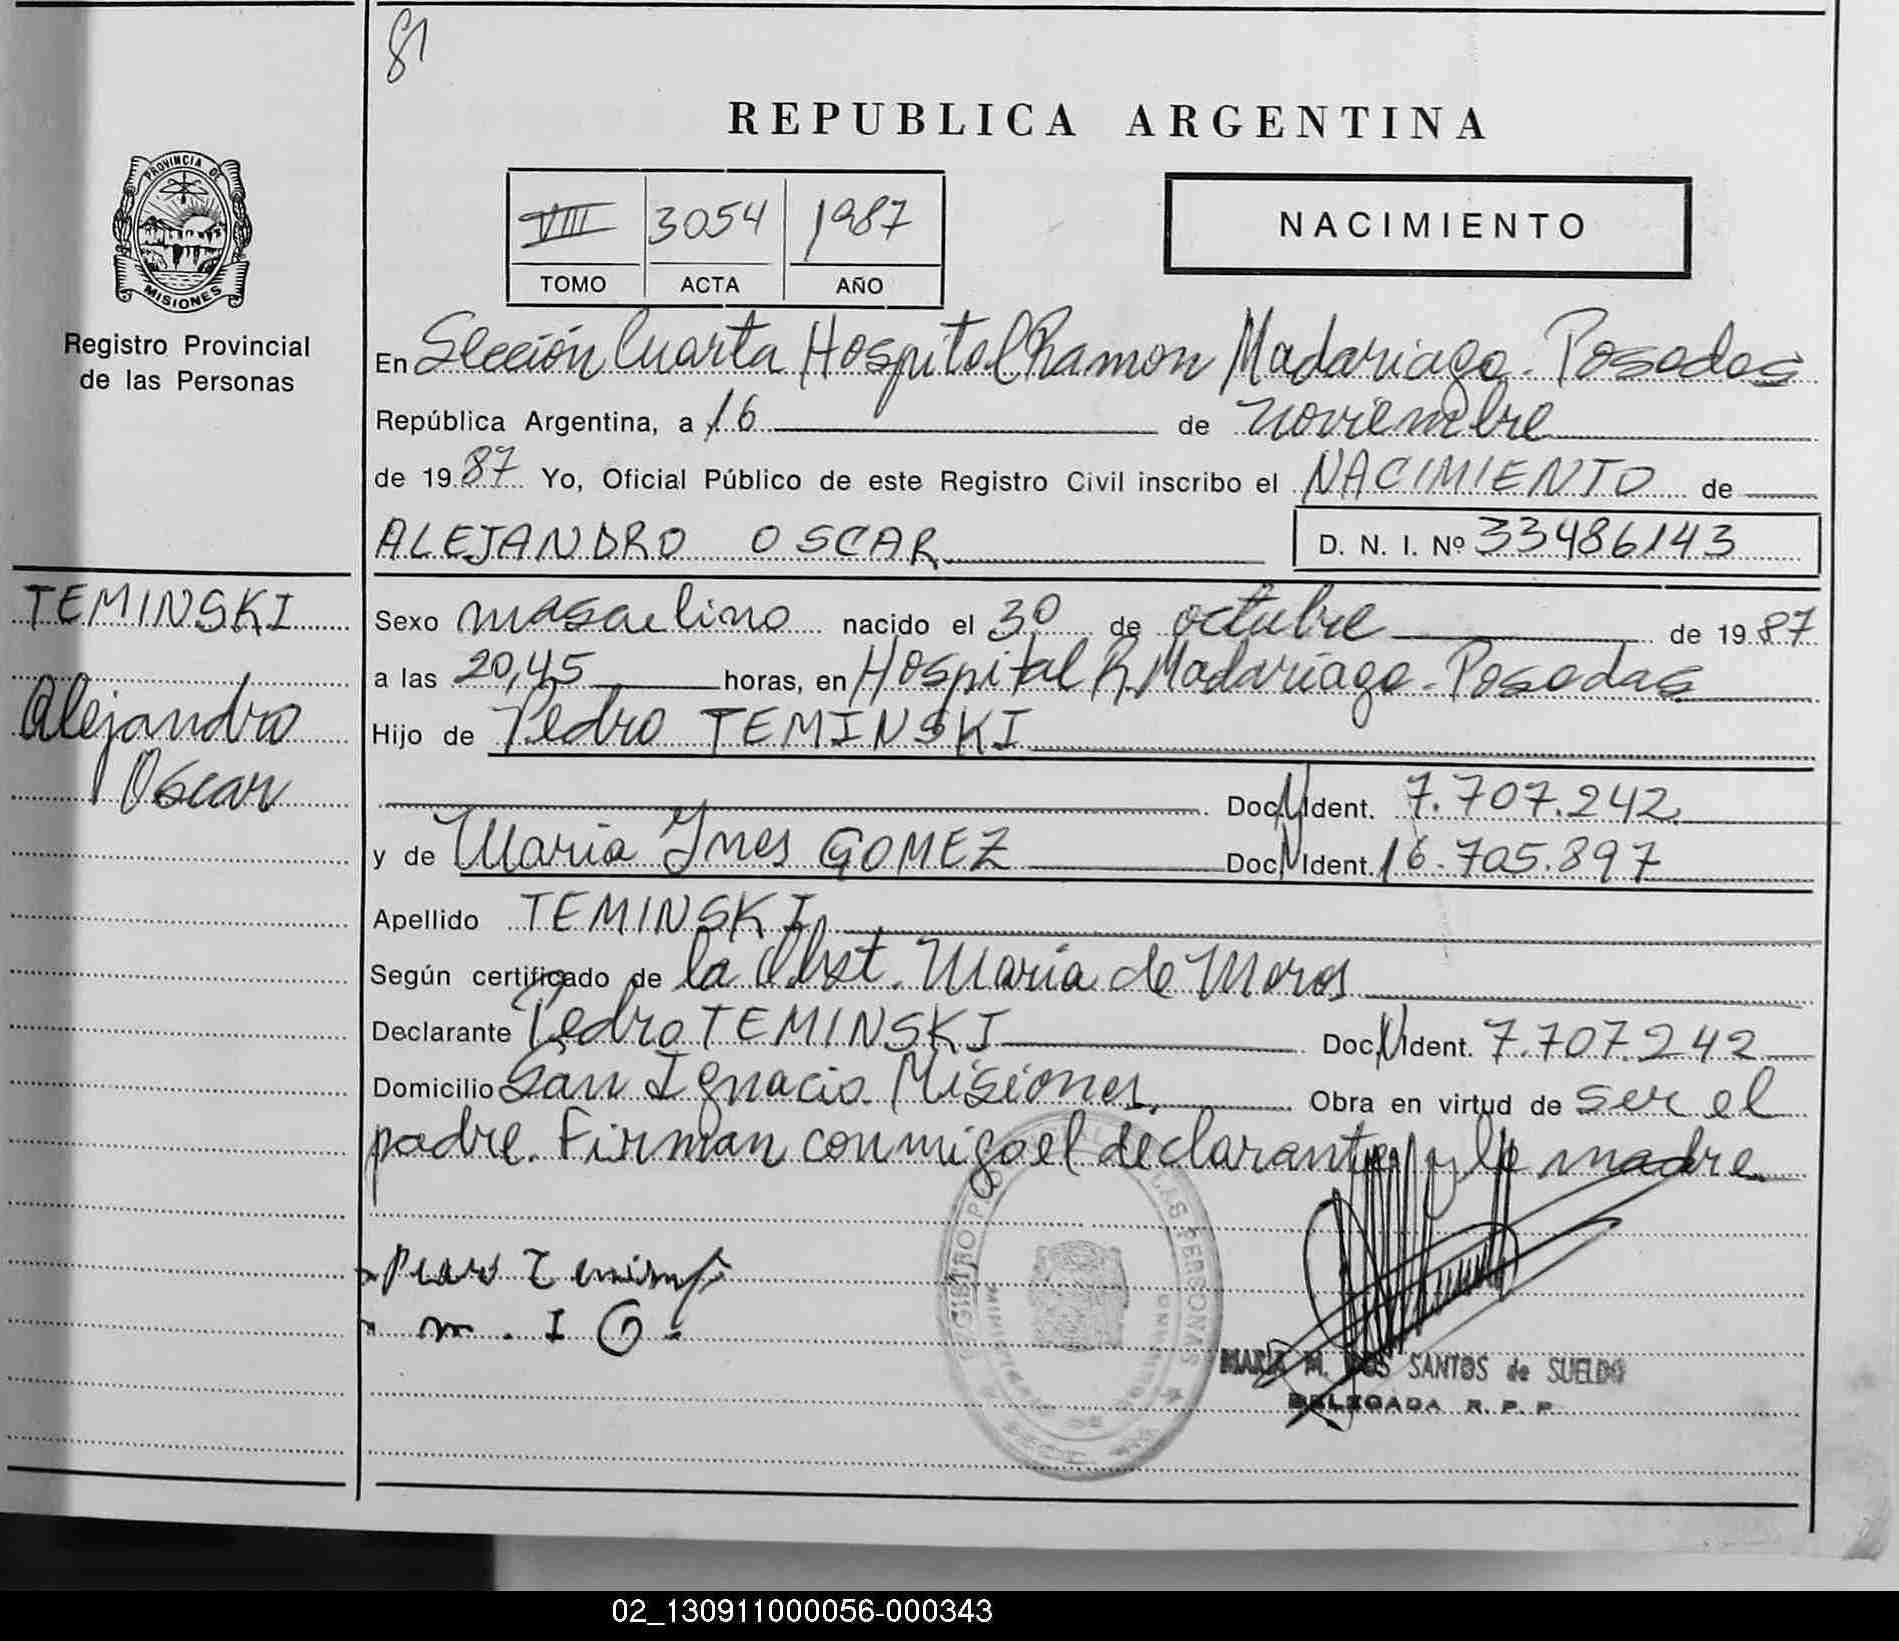 81
REPUBLICA ARGENTINA
PROVINCIA DE
MISIONES
Registro Provincial
de las Personas
VIII 3054 1987
TOMO ACTA AÑO
NACIMIENTO
En Sección Cuarta Hospital Ramon Madariaga. Posadas
República Argentina, a 16 de noviembre
de 1987 Yo, Oficial Público de este Registro Civil inscribo el NACIMIENTO de
ALEJANDRO OSCAR D. N. I. Nº 33486143
TEMINSKI
Alejandro
Oscar
Sexo masculino nacido el 30 de octubre de 1987
a las 20,45 horas, en Hospital R. Madariaga. Posadas
Hijo de Pedro TEMINSKI
Doc. N Ident. 7.707.242
y de Maria Ynes GOMEZ Doc. N Ident. 16.705.897
Apellido TEMINSKI
Según certificado de la Obst. Maria de Moros
Declarante Pedro TEMINSKI Doc. N Ident. 7.707.242
Domicilio San Ignacio. Misiones. Obra en virtud de ser el
padre. Firman conmigo el declarante y la madre
Pedro Teminski
m. I G.
LAS PERSONAS
MARIA M. DOS SANTOS de SUELDO
DELEGADA R. P. P.
02_130911000056-000343